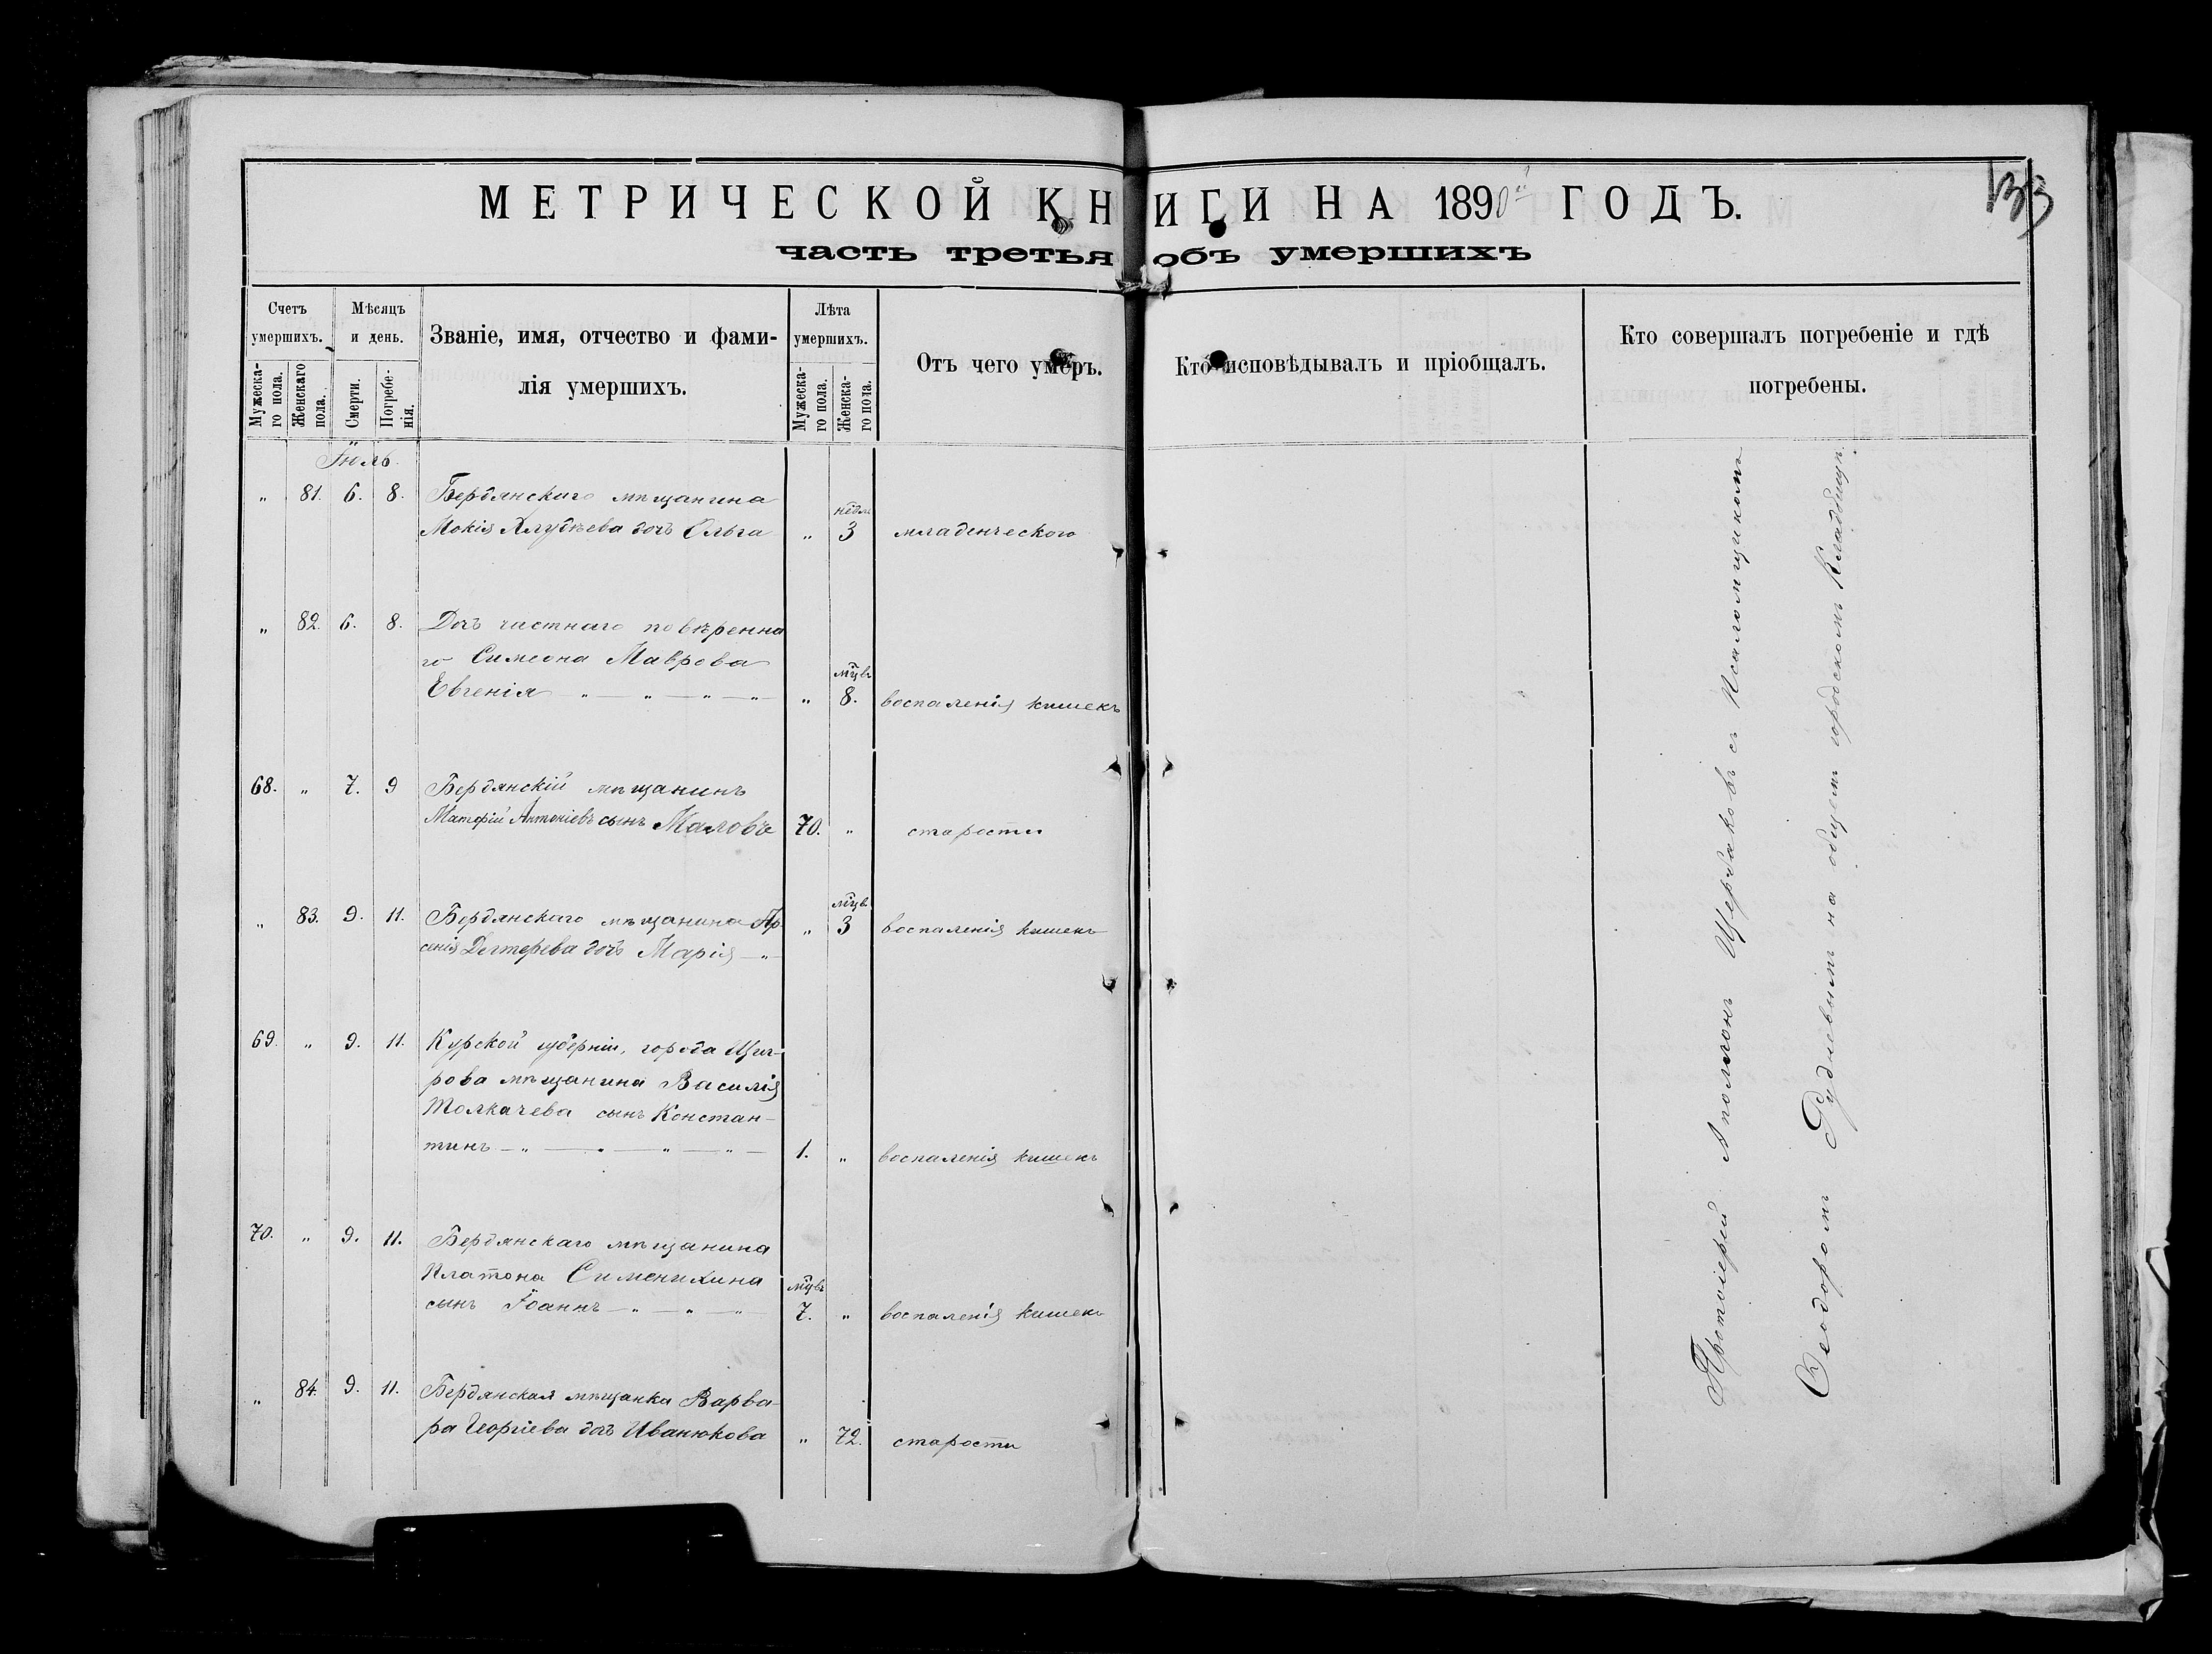 133
МЕТРИЧЕСКОЙ КНИГИ НА 1890й ГОДЪ.
часть третья объ умершихъ
Счетъ умершихъ.
Мужескаго пола.
Женскаго пола.
Мѣсяцъ и день.
Смерти.
Погребенія.
Званіе, имя, отчество и фами-
лія умершихъ.
Лѣта умершихъ.
Мужескаго пола.
Женскаго пола.
Отъ чего умеръ.
Кто исповѣдывалъ и пріобщалъ.
Кто совершалъ погребеніе и гдѣ
погребены.
Іюль.
" 81. 6. 8. Бердянскаго мѣщанина
недѣл
Мокія дочь Ольга " 3 младенческого
" 82. 6. 8. Дочь частнаго повѣренна
го Симеона Маврова
мцвъ
Евгенія " " " " " 8. воспаленія кишекъ
68. " 7. 9 Бердянскій мѣщанинъ
Матфій Антоніевъ сынъ 70. " старости
мцвъ
" 83. 9. 11. Бердянскаго мѣщанина Ар " 3 воспаленія кишекъ
сенія Дегтерева дочь Марія "
69. " 9. 11. Курской губерніи, города Щиг-
рова мѣщанина Василія
Толкачева сынъ Констан-
тинъ " " " " 1. " воспаленія кишекъ
70. " 9. 11. Бердянскаго мѣщанина
Платона Сименихина
мцвъ
сынъ Іоаннъ " " " 7. " воспаленія кишекъ
" 84. 9. 11. Бердянская мѣщанка Варва-
ра Георгіева дочь Иванюкова " 72. старости
Протоіерей Аполлонъ Щербаковъ съ Псаломщикомъ
Ѳеодоромъ Рудневымъ на общемъ городскомъ Кладбищѣ.